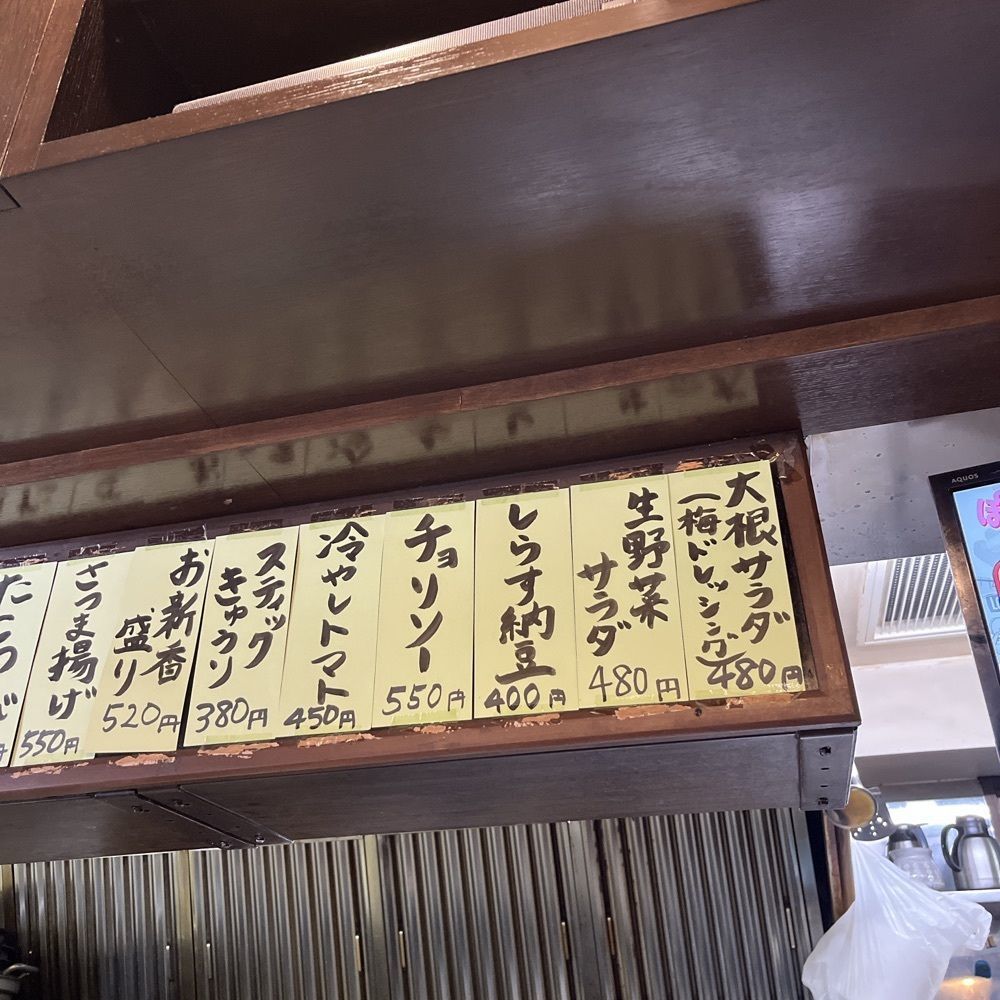 大根サラダ
(梅ドレッシング)
480円
生野菜
サラダ
480円
しらす納豆
400円
チョリソー
550円
冷やしトマト
450円
スティック
きゅうり
380円
お新香
盛り
520円
さつま揚げ
550円
AQUOS